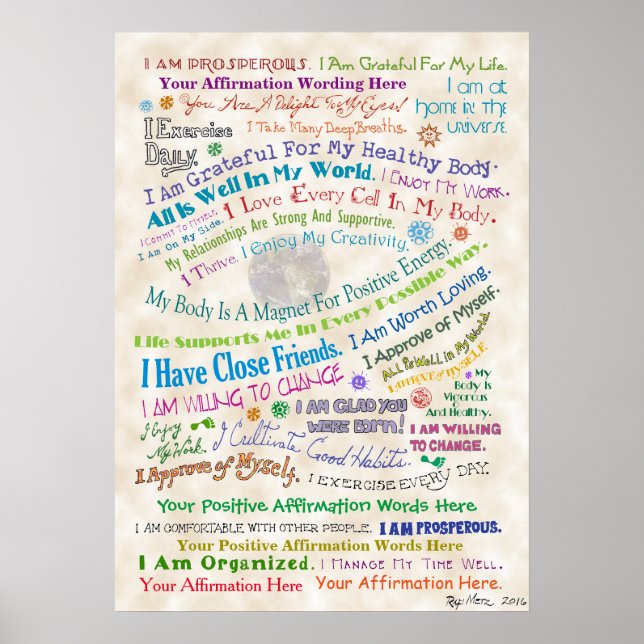 I AM PROSPEROUS. I Am Grateful For My Life.
Your Affirmation Wording Here
I am at
home in the
universe.
You Are A Delight To My Eyes!
I Exercise
Daily.
I Take Many Deep Breaths.
I Am Grateful For My Healthy Body.
All Is Well In My World.
I Enjoy My Work.
I Commit To Myself.
I Am On My Side.
I Love Every Cell In My Body.
My Relationships Are Strong And Supportive.
I Thrive. I Enjoy My Creativity.
My Body Is A Magnet For Positive Energy.
Life Supports Me In Every Possible Way.
I Am Worth Loving.
I Have Close Friends.
I Approve of Myself.
All Is Well in My World.
I APPROVE OF MYSELF
My
Body Is
Vigorous
And Healthy.
I AM WILLING TO CHANGE
I AM GLAD YOU
WERE BORN!
I AM WILLING
TO CHANGE.
I Enjoy
My Work.
I Cultivate Good Habits.
I Approve of Myself.
I EXERCISE EVERY DAY.
Your Positive Affirmation Words Here
I AM COMFORTABLE WITH OTHER PEOPLE. I AM PROSPEROUS.
Your Positive Affirmation Words Here
I Am Organized. I Manage My Time Well.
Your Affirmation Here Your Affirmation Here.
Metz 2016